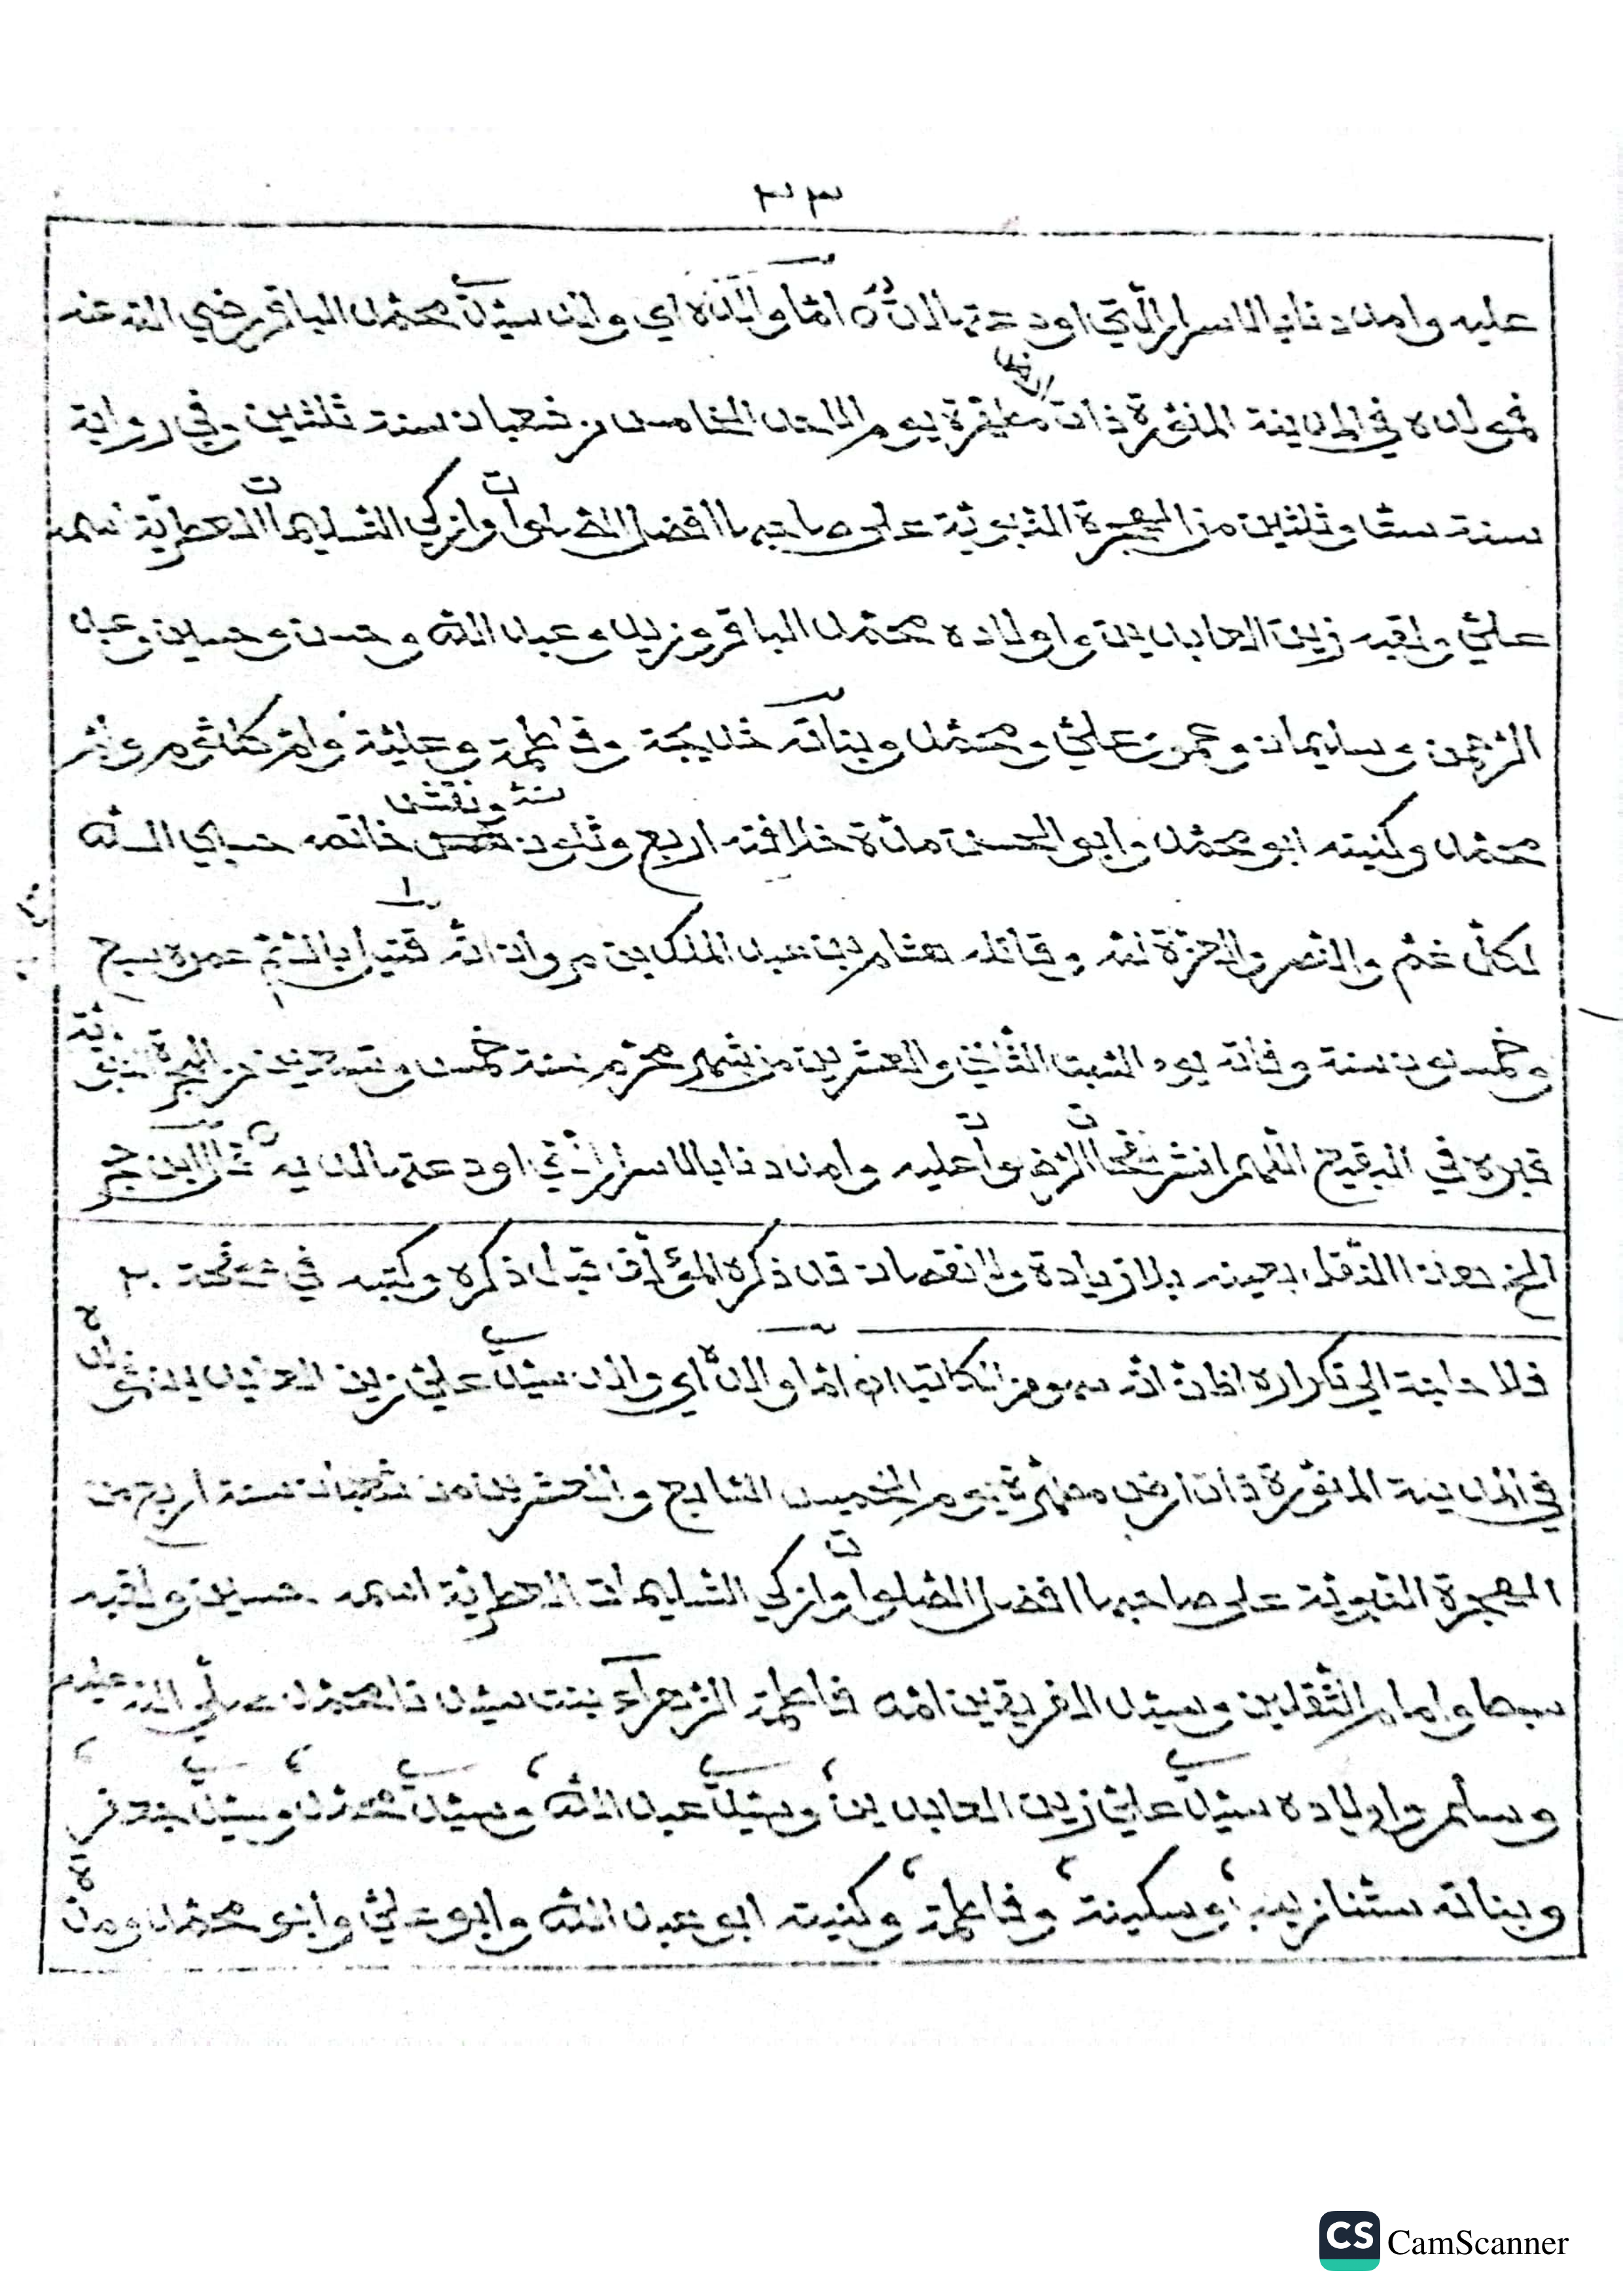 ٣٣
عليه وامددنا بالاسرار الّتي اودعتها لديه امّا والده اي والد سيّدي محمّد الباقر رضي الله عنه
فمولده في المدينة المنوّرة ذات ارض مطهّرة يوم الاحد الخامس من شعبان سنة ثلثين وفي رواية
سنة ستّا وثلثين من الهجرة النّبويّة على صاحبها افضل الصّلوات وازكى التّسليمات العطريّة اسمه
عليّ ولقبه زين العابدين واولاده محمّد الباقر وزيد وعبد اللّه وحسن وحسين وعبد
الرّحمن وسليمان وعمر وعليّ ومحمّد وبناته خديجة وفاطمة وعليّة وامّ كلثوم وامّ
محمّد وكنيته ابو محمّد وابو الحسن مدّة خلافته اربع وثلثون سنة ونقش خاتمه حسبي اللّه
لكلّ غمّ والنّصر والعزّة للّه وقاتله هشام بن عبد الملك بن مروان انّه قتيل بالسّمّ عمره سبع
وخمسون سنة وفاته يوم السّبت الثّاني والعشرين من شهر محرّم سنة خمس وتسعين من الهجرة النّبويّة
قبره في البقيع اللّهم انشر نفحات الرّضوان عليه وامددنا بالاسرار الّتي اودعتها لديه قال ابن حجر
الخ هذا النّقل بعينه بلا زيادة ولا نقصان قد ذكره المؤلّف قبل ذكره وكتبه في صفحة ٢٠
فلا حاجة الى تكراره اظنّ انّه سهو من الكاتب امّا والده اي والد سيّدي عليّ زين العابدين فمولده
في المدينة المنوّرة ذات ارض مطهّرة يوم الخميس السّابع والعشرين من شعبان سنة اربع من
الهجرة النّبويّة على صاحبها افضل الصّلوات وازكى التّسليمات العطريّة اسمه حسين ولقبه
سبط وامام الثّقلين وسيّد الفريقين امّه فاطمة الزّهراء بنت سيّدنا محمّد صلّى اللّه عليه
وسلّم واولاده سيّدي عليّ زين العابدين وسيّدي عبد اللّه وسيّدي محمّد وسيّدي جعفر
وبناته ستّنا زينب وسكينة وفاطمة وكنيته ابو عبد اللّه وابو عليّ وابو محمّد ومدّة
CS CamScanner